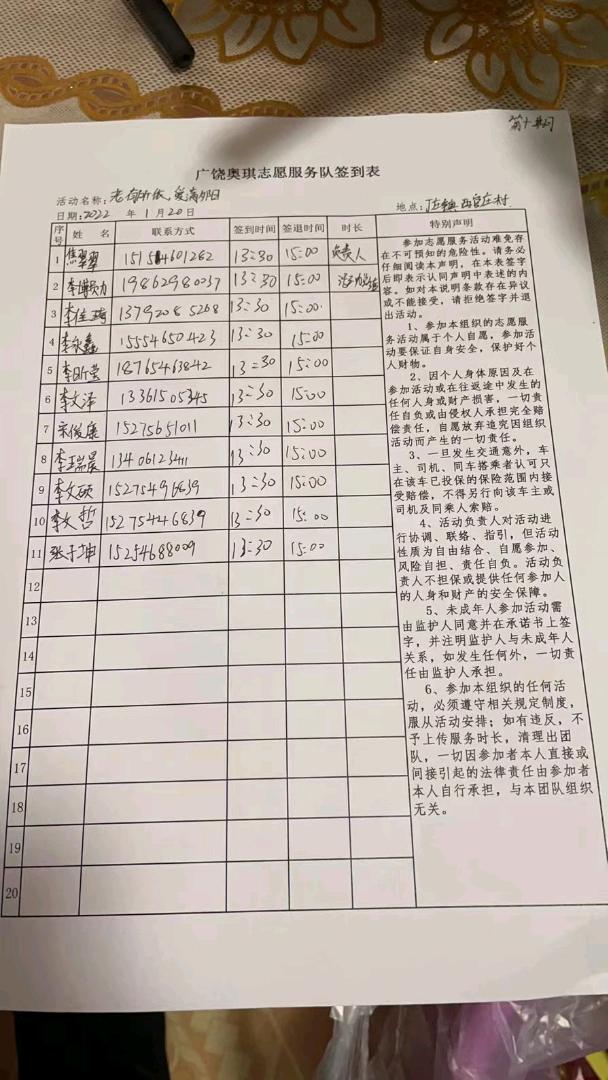 广饶奥琪志愿服务队签到表
活动名称：老有所依，爱满夕阳
日期：2022 年 1 月 20 日 地点：庄村
序号 姓 名 联系方式 签到时间 签退时间 时长 特别声明
1 13:30 15:00 负责人
2 19862980037 13:30 15:00
3 李佳 13792085268 13:30 15:00
4 李永鑫 15554650423 13:30 15:00
5 李昕莹 18765463842 13:30 15:00
6 李文泽 13361505345 13:30 15:00
7 宋俊康 15275651011 13:30 15:00
8 李瑞晨 13406123411 13:30 15:00
9 李文硕 13:30 15:00
10 李文哲 15275446839 13:30 15:00
11 张子坤 15254688009 13:30 15:00
12
13
14
15
16
17
18
19
20
参加志愿服务活动难免存
在不可预知的危险性。请务必
仔细阅读本声明，在本表签字
后即表示认同声明中表述的内
容。如对本说明条款存在异议
或不能接受，请拒绝签字并退
出活动。
1、参加本组织的志愿服
务活动属于个人自愿，参加活
动要保证自身安全，保护好个
人财物。
2、因个人身体原因及在
参加活动或在往返途中发生的
任何人身或财产损害，一切责
任自负或由侵权人承担完全赔
偿责任，自愿放弃追究因组织
活动而产生的一切责任。
3、一旦发生交通意外，车
主、司机、同车搭乘者认可只
在该车已投保的保险范围内接
受赔偿，不得另行向该车主或
司机及同乘人索赔。
4、活动负责人对活动进
行协调、联络、指引，但活动
性质为自由结合、自愿参加、
风险自担、责任自负。活动负
责人不担保或提供任何参加人
的人身和财产的安全保障。
5、未成年人参加活动需
由监护人同意并在承诺书上签
字，并注明监护人与未成年人
关系，如发生任何外，一切责
任由监护人承担。
6、参加本组织的任何活
动，必须遵守相关规定制度，
服从活动安排；如有违反，不
予上传服务时长，清理出团
队，一切因参加者本人直接或
间接引起的法律责任由参加者
本人自行承担，与本团队组织
无关。